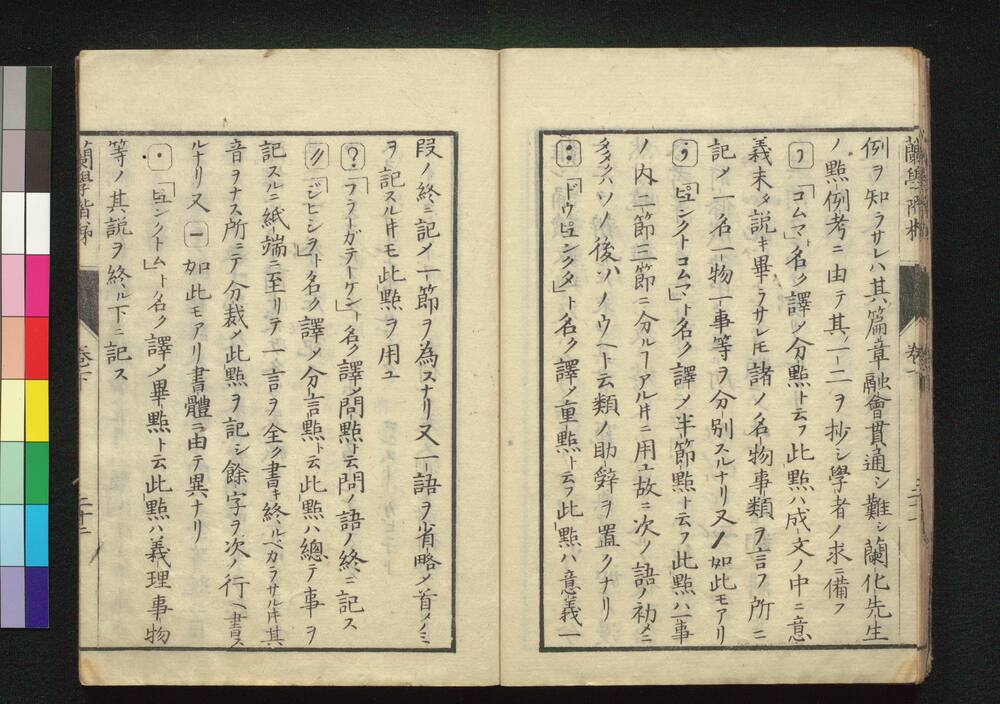 例ヲ知ラサレハ其篇章融會貫通シ難シ蘭化先生
ノ點例考ニ由テ其一二ヲ抄シ學者ノ求ニ備フ
「コムマ」ト名ク譯メ分點ト云フ此點ハ成文ノ中ニ意
義未タ説キ畢ラサレ𪜈諸ノ名物事類ヲ言フ所ニ
記メ一名一物一事等ヲ分別スルナリ又/如此モアリ
「ピュンクトコムマ」ト名ク譯メ半節點ト云フ此點ハ一事
ノ内二節三節ニ分ルヿアル𪜈ニ用ユ故ニ次ノ語ノ初メニ
多クハソノ後ソノウヘト云類ノ助辭ヲ置クナリ
「ドウピュンクタ」ト名ク譯メ重點ト云フ此點ハ意義一
段ノ終ニ記メ一節ヲ為スナリ又一語ヲ省略メ首メノミ
ヲ記スル𪜈モ此點ヲ用ユ
?「フラートガテーケン」ト名ク譯メ問點ト云問ノ語ノ終ニ記ス
〃「ジヒシヲ」ト名ク譯メ分言點ト云此點ハ總テ事ヲ
記スルニ紙端ニ至リテ一言ヲ全ク書キ終ルベカラサル𪜈其
音ヲナス所ニテ分裁メ此點ヲ記シ餘字ヲ次ノ行ヘ書ス
ルナリ又一如此モアリ書體ニ由テ異ナリ
・「ピュンクトム」ト名ク譯メ畢點ト云此點ハ義理事物
等ノ其説ヲ終ル下ニ記ス
蘭學階梯
卷下